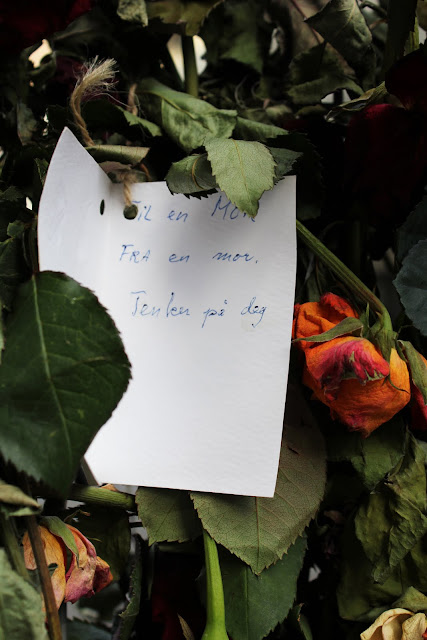 Til en Mor
FRA en mor.
Tenker på deg